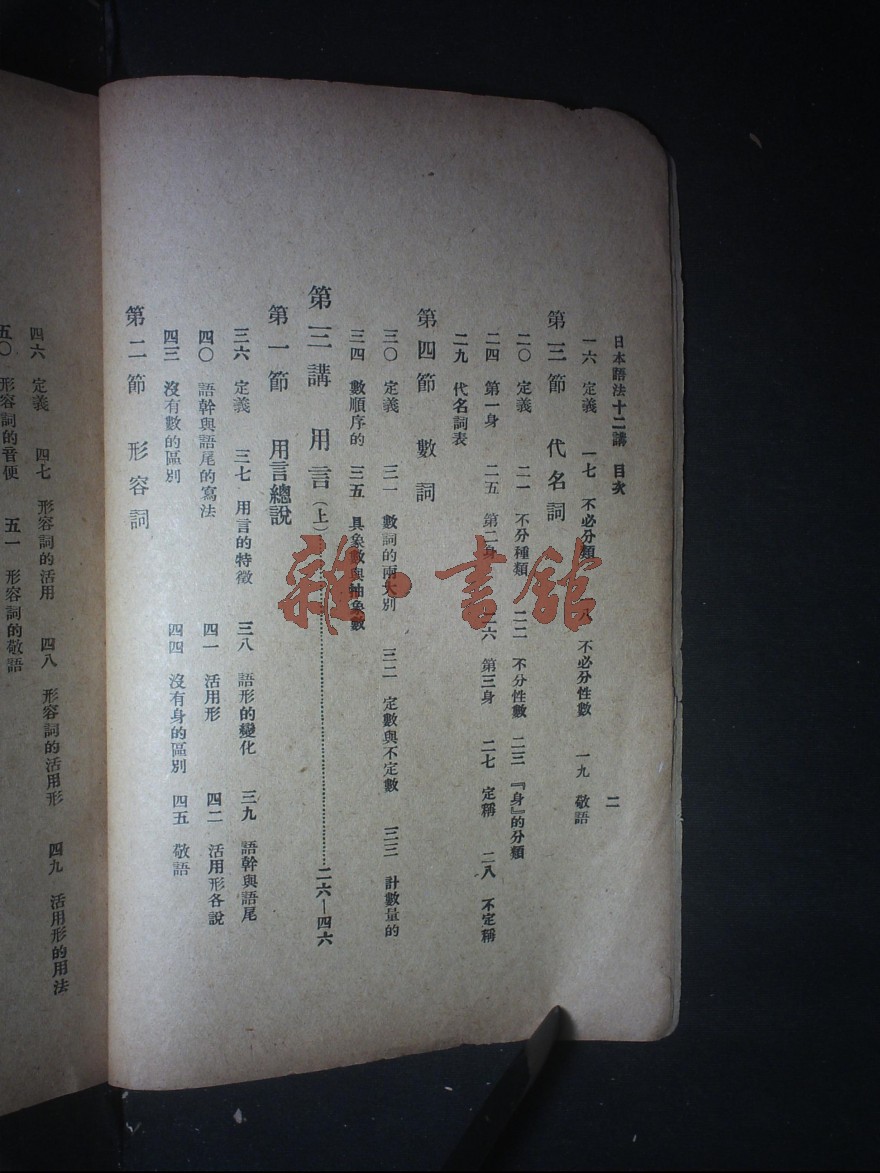 日本語法十二講　目次
二
一六　定義　一七　不必分類　八　不必分性數　一九　敬語
第三節　代名詞
二〇　定義　二一　不分種類　二二　不分性數　二三　『身』的分類
二四　第一身　二五　第二身　二六　第三身　二七　定稱　二八　不定稱
二九　代名詞表
第四節　數詞
三〇　定義　三一　數詞的兩大別　三二　定數與不定數　三三　計數量的
三四　數順序的　三五　具象數與抽象數
第三講　用言（上）……二六—四六
第一節　用言總說
三六　定義　三七　用言的特徵　三八　語形的變化　三九　語幹與語尾
四〇　語幹與語尾的寫法　四一　活用形　四二　活用形各說
四三　沒有數的區別　四四　沒有身的區別　四五　敬語
第二節　形容詞
四六　定義　四七　形容詞的活用　四八　形容詞的活用形　四九　活用形的用法
五〇　形容詞的音便　五一　形容詞的敬語
雜·書館